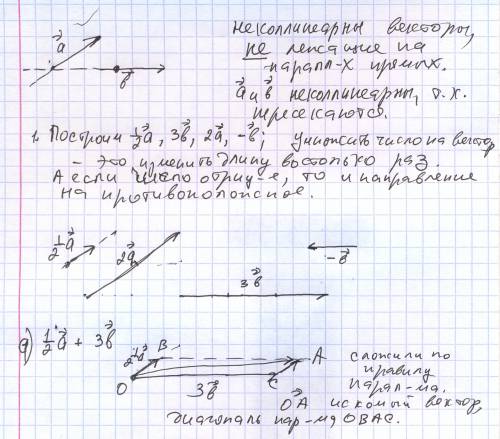 a⃗
b⃗
Неколлинеарны векторы,
не лежащие на
паралл-х прямых.
a⃗ и b⃗ неколлинеарны, т.к.
пересекаются.
1. Построим ½a⃗, 3b⃗, 2a⃗, -b⃗; умножить число на вектор
- это изменить длину во столько раз.
А если число отриц-е, то и направление
на противоположное.
½a⃗ 2a⃗ 3b⃗ -b⃗
а) ½a⃗ + 3b⃗
½a⃗ B A
O 3b⃗ C
сложили по
правилу
парал-ма.
OA⃗ искомый вектор,
диагональ пар-ма OBAC.